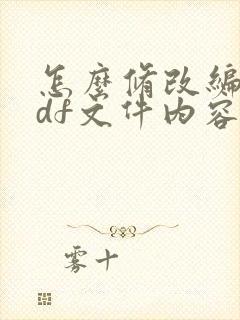 怎麼脩改編
df文件内容
雾十